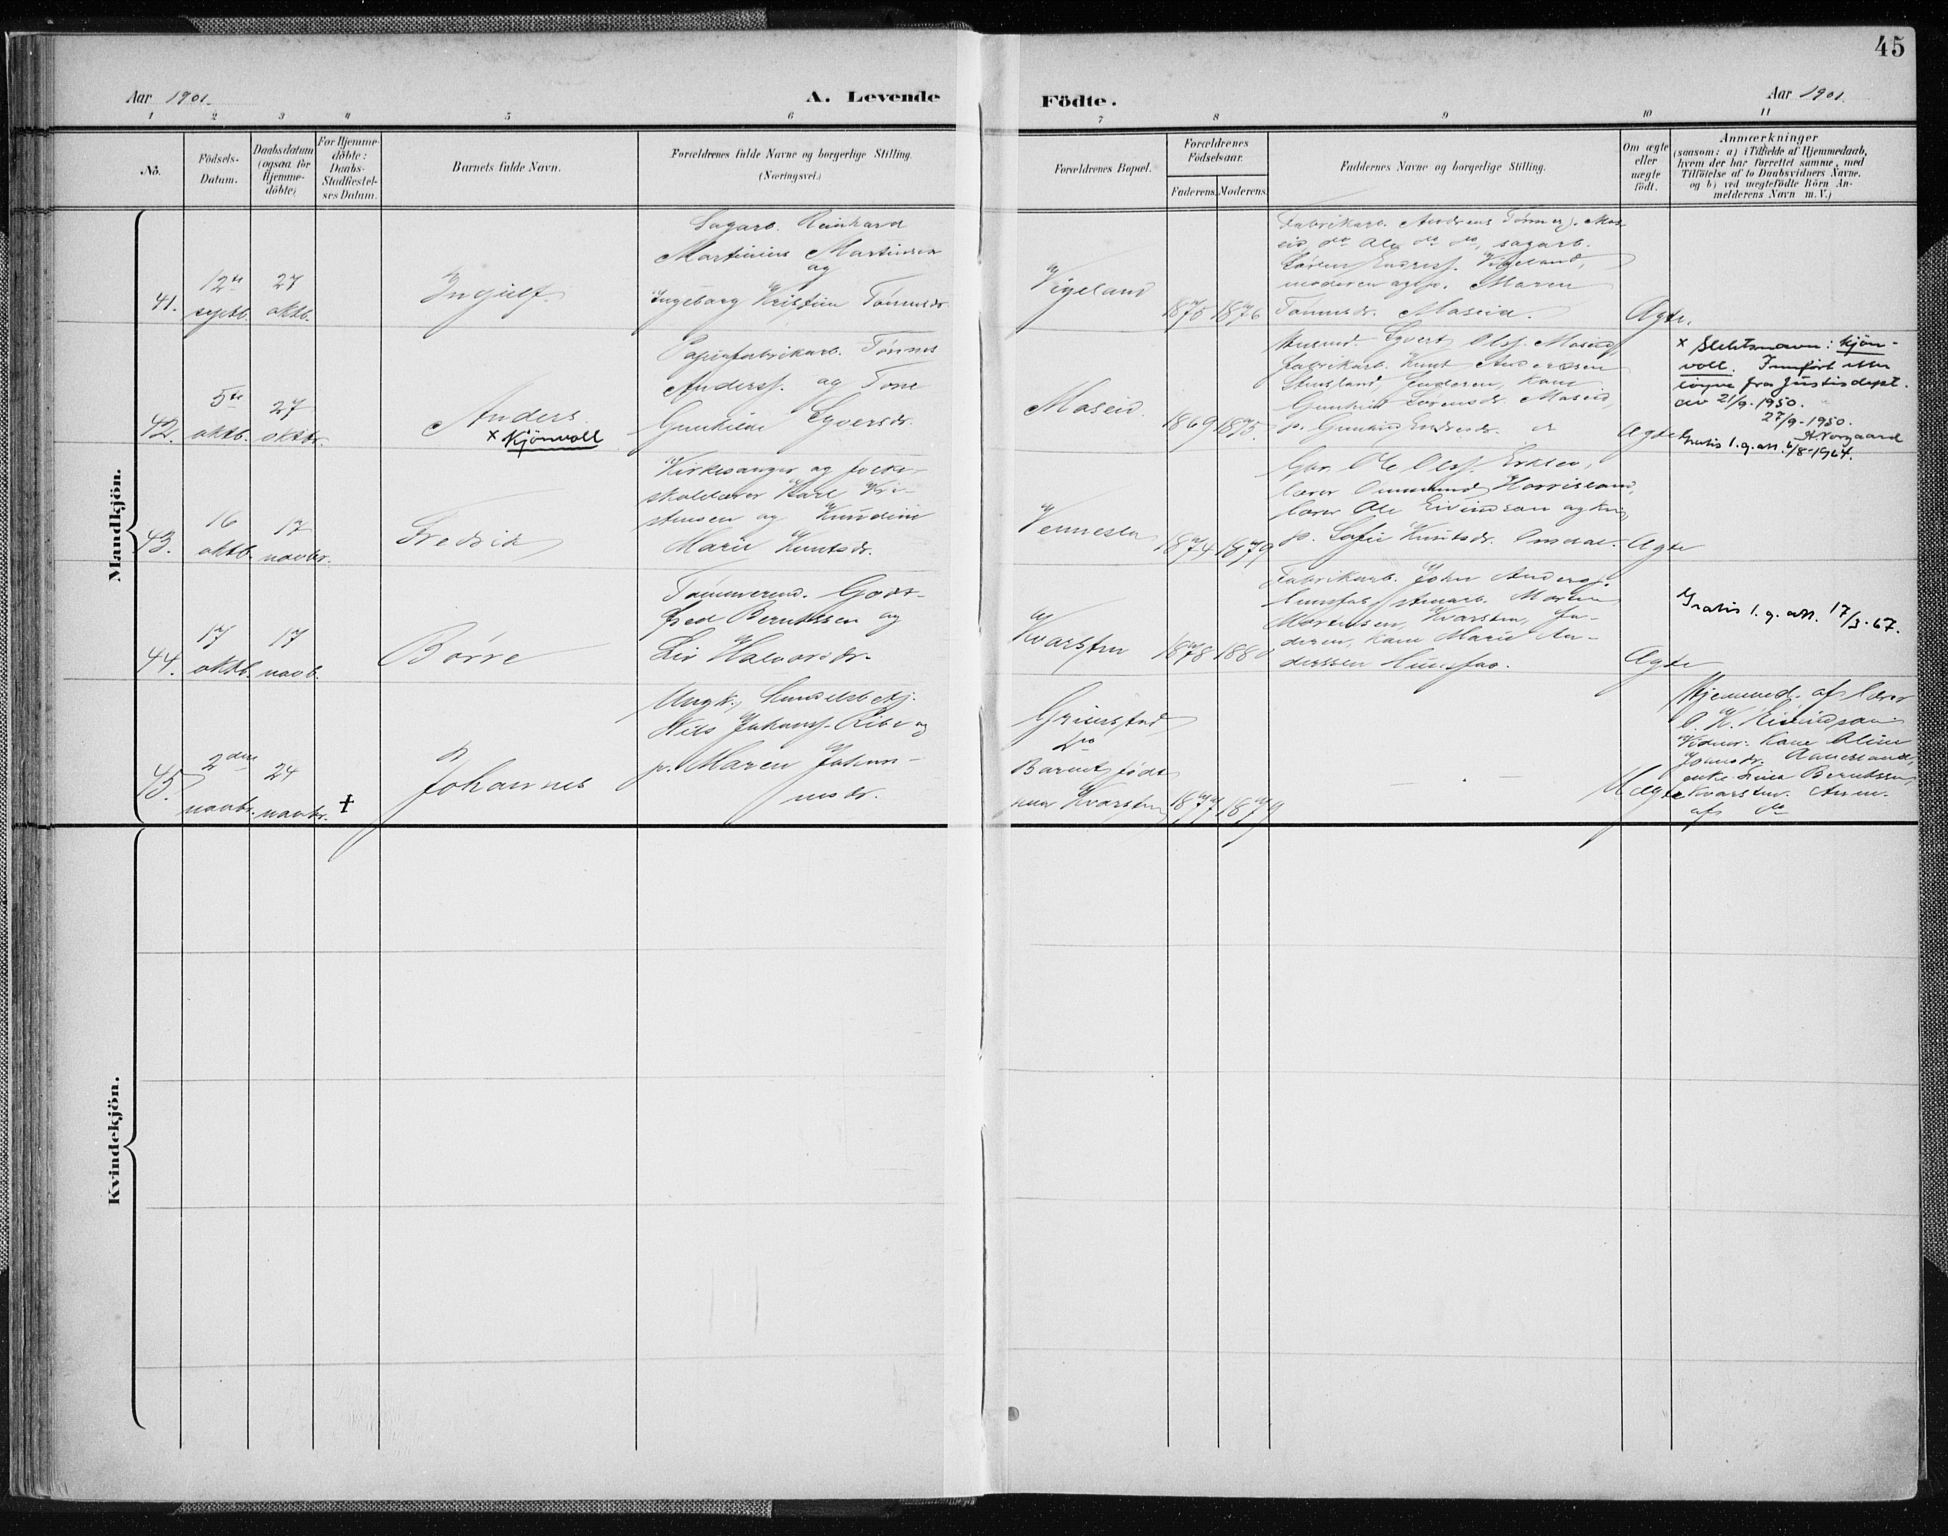 45
Aar 1901.
A. Levende
Födte.
Aar 1901.
1 2 3 4 5 6 7 8 9 10 11
No.
Födsels-
Datum.
Daabsdatum
(ogsaa for
Hjemme-
döbte)
For Hjemme-
döbte:
Daabs-
Stadfæstel-
ses Datum.
Barnets fulde Navn.
Forældrenes fulde Navne og borgerlige Stilling.
(Næringsvei.)
Forældrenes Bopæl.
Forældrenes
Födselsaar.
Faderens. Moderens.
Faddernes Navne og borgerlige Stilling.
Om ægte
eller
uægte
født.
Anmærkninger
(saasom: a) i Tilfælde af Hjemmedaab,
hvem der har forrettet samme, med
Tilføielse af to Daabsvidners Navne.
og b) ved uægtefödte Börn An-
melderens Navn m. V.)
Mandkjön.
41.
12te
septb.
27
oktb.
Ingulf
Sagarb. Reinhard
Martinius Martinsen
og
Ingeborg Kristine Tønnesdr.
Vigeland
1875 1876
Fabrikarb. Andreas Tønnesj. Mo-
seid, do Ole do do, sagarb.
Sören Endress. Vigeland,
moderen og p. Maren
Tønnesdr. Moseid.
Ægte.
42.
5te
oktb.
27
oktbr.
Anders
x Kjönvoll
Papirfabrikarb. Tönnes
Anderss. og Tone
Gunhilde Syversdr.
Moseid.
1869 1875.
Syvert Olss. Moseid,
fabrikarb. Knut Andersen
Stensland, Faderen, kone
Gunhild Sorensdr. Moseid,
p. Gunhild Endresdr. do
Ægte
x Slektsnavn: Kjön-
voll. Innført etter
fra Justisdept.
av 21/9-1950.
27/9-1950.
Gratis l. g. att. 6/8-1964.
43.
16
oktb.
17
novbr.
Fredrik
Kirkesanger og folke-
skolelærer Karl Kri-
stensen og
Marie Knutsdr.
Vennesla
1874 1879
Gbr. Ole Olss. Erklev,
lærer Ommund Horrisland,
lærer Ole Eivindson og
p. Sofie Knutsdr. Omdal.
Ægte
44.
17
oktb.
17
novb.
Börre
Tömmerm. Godt-
fred Berntssen og
Liv Halvorsdr.
Kvarsten
1878 1880
Fabrikarb. John Anderss.
Hunsfos, stenarb. Morten
Mortensen, Kvarsten, fa-
deren, kone Marie An-
derssen Hunsfos.
Ægte
Gratis l. g. att. 17/3-67.
45.
2den
novbr.
24
novbr. †
Johannes
Ungk. Handelsbetj.
Nils Johanss. Ribe og
p. Maren Johan-
nesdr.
do
Barnet født
paa Kvarsten
1877 1879
— . —
Uægte
Hjemmed. af lærer
O. K. Eivindson
Vidner: Kone Oline
enke Berntssen
Kvarsten. Anm.
af do
Kvindekjön.